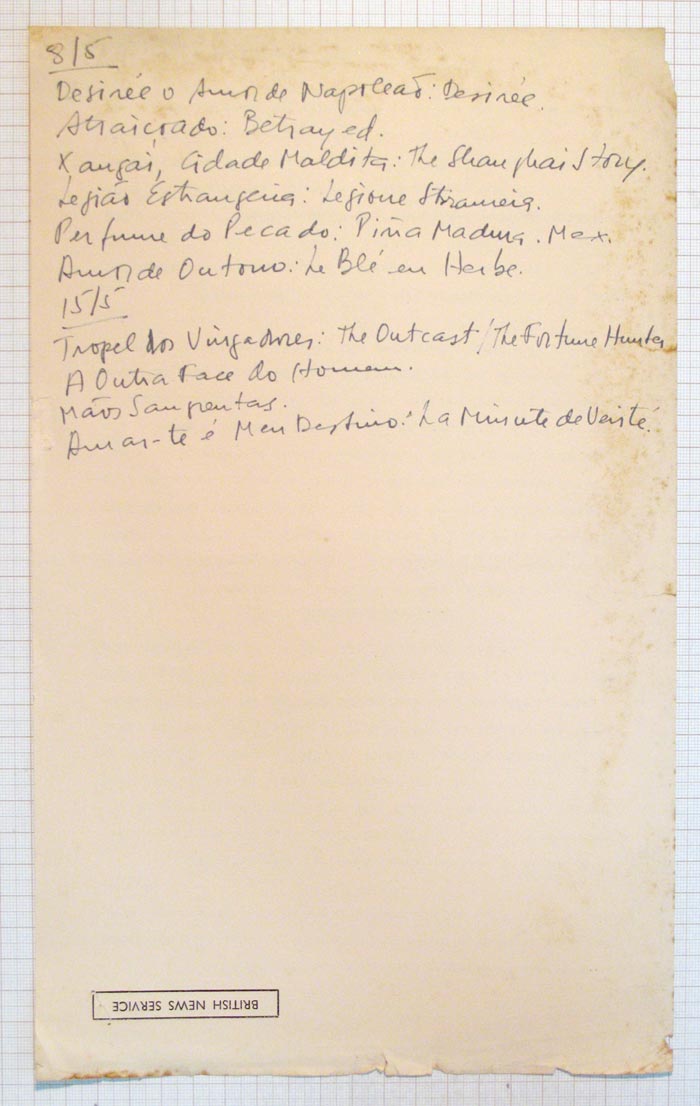 8/5
Desirée o Amor de Napoleão: Desirée.
Atraiçoado: Betrayed.
Xangai, Cidade Maldita: The Shanghai Story.
Legião Estrangeira: Legione Straniera.
Perfume do Pecado: Piña Madura. Mex.
Amor de Outono: Le Blé en Herbe.
15/5
Tropel dos Vingadores: The Outcast/The Fortune Hunter
A Outra Face do Homem.
Mãos Sangrentas.
Amar-te é Meu Destino: La Minute de Verité.
BRITISH NEWS SERVICE